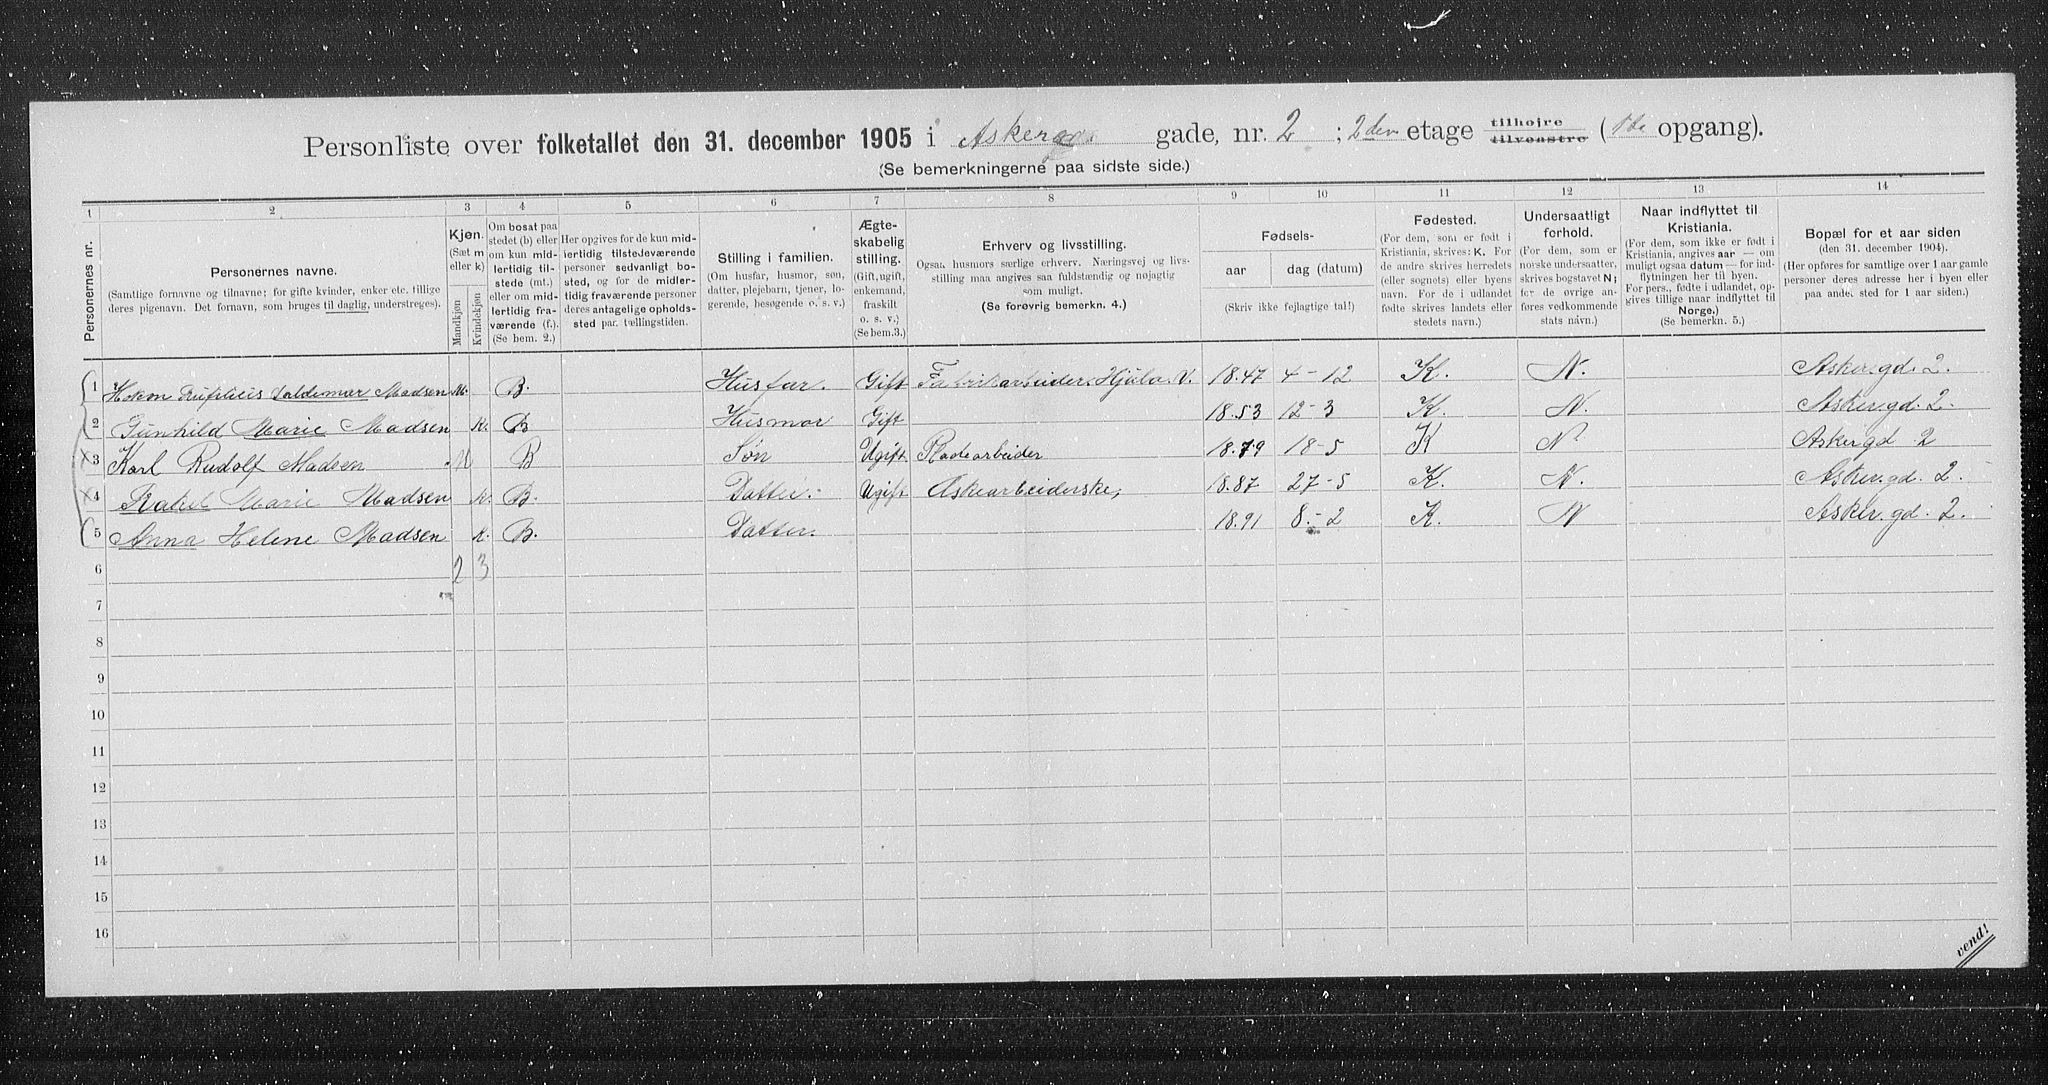 Personliste over folketallet den 31. december 1905 i Asker gade, nr. 2 ; 2den etage tilhøjre tilvenstre ( opgang).
(Se bemerkningerne paa sidste side.)
1 2 3 4 5 6 7 8 9 10 11 12 13 14
Personernes nr.
Personernes navne.
(Samtlige fornavne og tilnavne; for gifte kvinder, enker etc. tillige
deres pigenavn. Det fornavn, som bruges til daglig, understreges).
Kjøn.
(Sæt m
eller k)
Mandkjøn
Kvindekjøn
Om bosat paa
stedet (b) eller
om kun mid-
lertidig til-
stede (mt.)
eller om mid-
lertidig fra-
værende (f.).
(Se bem. 2.)
Her opgives for de kun mid-
lertidig tilstedeværende
personer sedvanligt bo-
sted, og for de midler-
tidig fraværende personer
deres antagelige opholds-
sted par. tællingstiden.
Stilling i familien.
(Om husfar, husmor, søn,
datter, plejebarn, tjener, lo-
gerende, besøgende o. s. v.)
Ægte-
skabelig
stilling.
(Gift, ugift,
enkemand,
fraskilt
o. s. v.)
(Se bem.3.)
Erhverv og livsstilling.
Ogsaa husmors særlige erhverv. Næringsvej og livs-
stilling maa angives saa fuldstændig og nøjagtig
som muligt.
(Se forøvrig bemerkn. 4.)
Fødsels-
aar
dag (datum)
(Skriv ikke fejlagtige tal!)
Fødested.
(For dem, som er født i
Kristiania, skrives: K. For
de andre skrives herredets
(eller sognets) eller byens
navn. For de i udlandet
fødte skrives landets eller
stedets navn.)
Undersaatligt
forhold.
(For dem, som er
norske undersaatter,
skrives bogstavet N;
for de øvrige an-
føres vedkommende
stats navn.)
Naar indflyttet til
Kristiania.
(For dem, som ikke er født i
Kristiania, angives aar — om
muligt ogsaa datum — for ind-
flytningen her til byen.
For pers., fødte i udlandet, op-
gives tillige naar indflyttet til
Norge.)
(Se bemerkn. 5.)
Bopæl for et aar siden
(den 31. december 1904).
(Her opføres for samtlige over 1 aar gamle
personer deres adresse her i byen eller
paa andet sted for 1 aar siden.)
1 Valdemar Madsen M. B. Husfar. Gift Fabrikarbeider. Hjula. V. 18.47 4-12 K. N. Asker.gd. 2.
2 Gunhild Marie Madsen K. B Husmor Gift 18.53 12-3 K. N. Asker.gd. 2.
3 Karl Rudolf Madsen M B Søn Ugift 18.79 18-5 K N Asker gd 2
4 Rakel Marie Madsen K. B. Datter. Ugift 18.87 27-5 K. N. Asker.gd. 2.
5 Anna Helene Madsen K. B. Datter. 18.91 8.-2 K. N Asker.gd. 2.
6 2 3
7
8
9
10
11
12
13
14
15
16
vend!